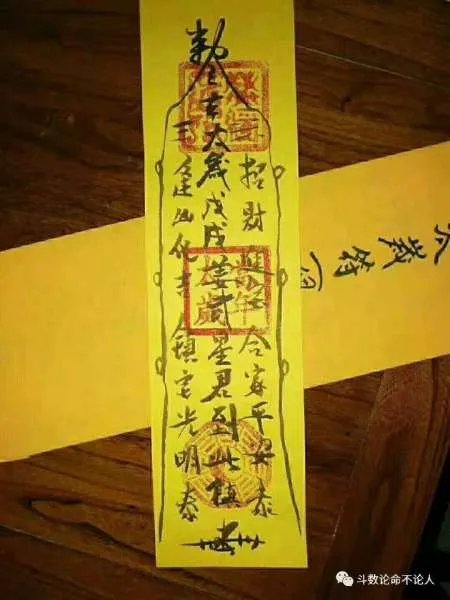 招財進寶合家平安泰
敕令
太歲戊戌姜武星君到此鎮
逢凶化吉鎮宅光明泰
太歲符一
斗数论命不论人